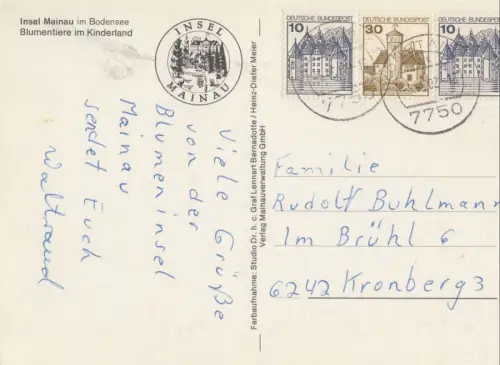 Insel Mainau im Bodensee
Blumentiere im Kinderland
INSEL
MAINAU
Viele Grüße
von der
Blumeninsel
Mainau
sendet Euch
Waltraud
Farbaufnahme: Studio Dr. h. c. Graf Lennart Bernadotte / Heinz-Dieter Meier
Verlag Mainauverwaltung GmbH
DEUTSCHE BUNDESPOST
10
DEUTSCHE BUNDESPOST
30
DEUTSCHE BUNDESPOST
10
775
7750
Familie
Rudolf Buhlmann
Im Brühl 6
6242 Kronberg 3